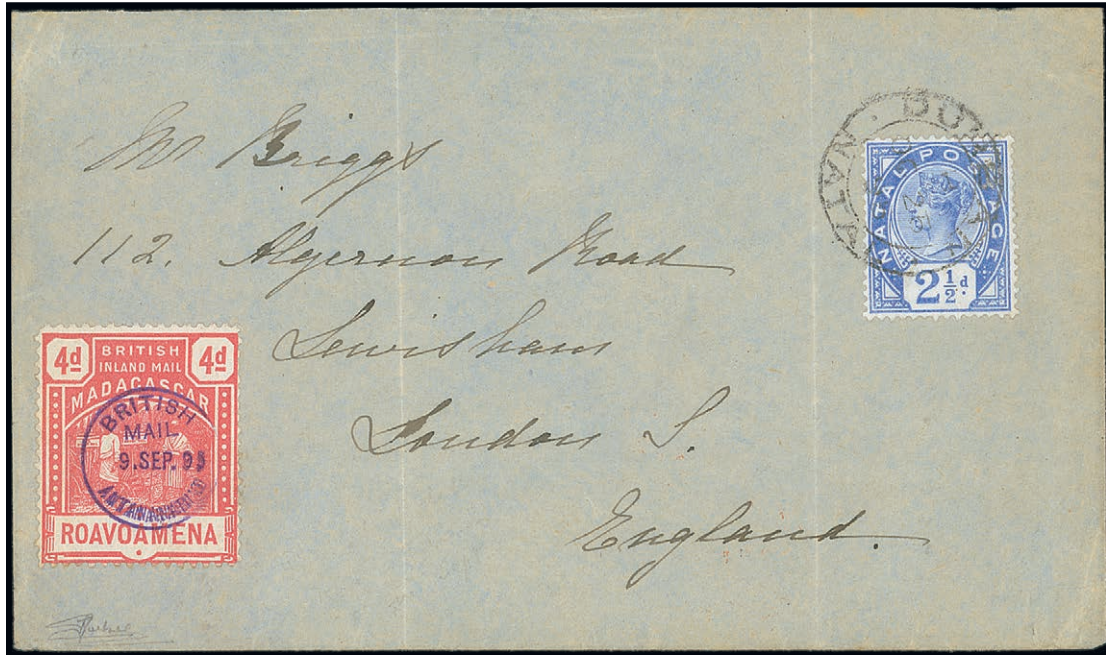 Mr Briggs
112. Algernon Road
Lewisham
London S.
England.
NATAL POSTAGE
2 1/2 d.
4d BRITISH 4d
INLAND MAIL
MADAGASCAR
BRITISH
MAIL
9. SEP. 95
ROAVOAMENA